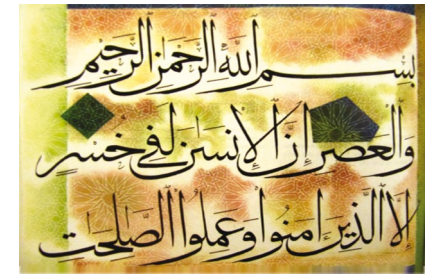 بسم الله الرحمن الرحيم
والعصر إن الإنسن لفي خسر
إلا الذين امنوا وعملوا الصلحت